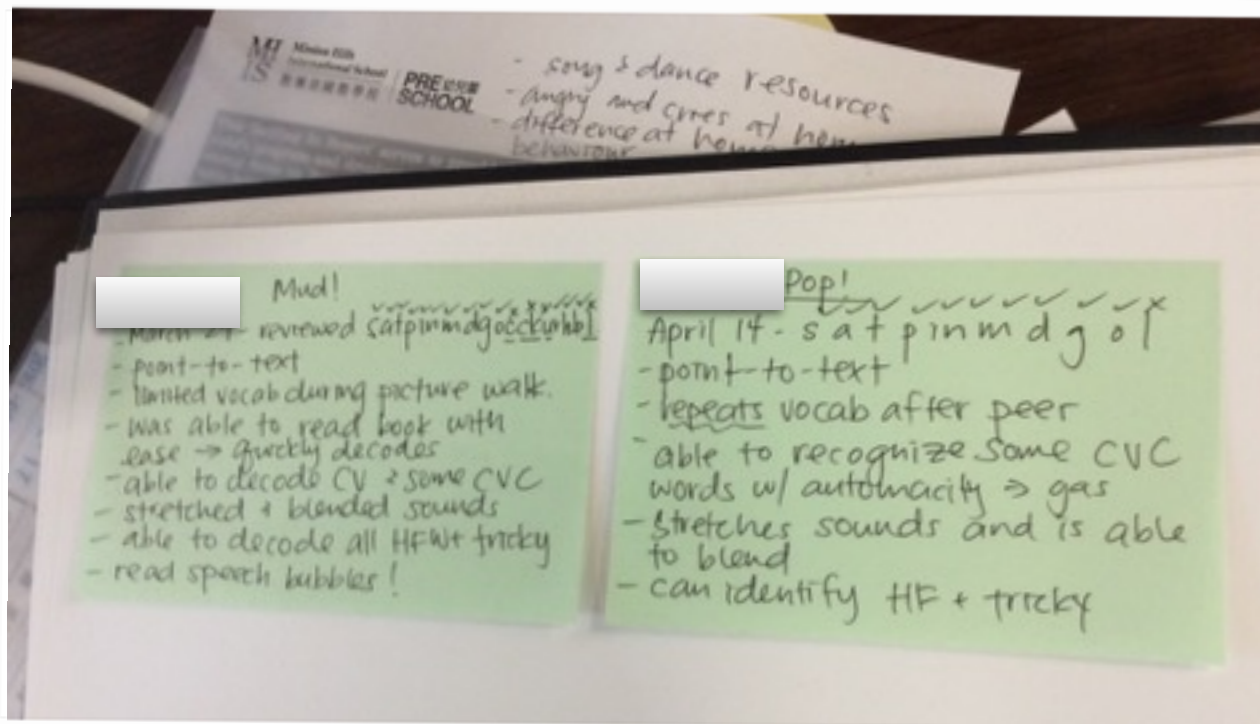 Mission Hills
International School
PRE 幼兒部
SCHOOL
- song & dance resources
- angry and cries at home
- difference at home
behaviour
Mud!
- reviewed satpinmdgo
- point-to-text
- limited vocab during picture walk.
- was able to read book with
ease → quickly decodes
- able to decode CV & some CVC
- stretched + blended sounds
- able to decode all HFW+ tricky
- read speech bubbles!
Pop!
April 14 - s a t p i n m d g o l
- point-to-text
- repeats vocab after peer
- able to recognize some CVC
words w/ automacity → gas
- stretches sounds and is able
to blend
- can identify HF + tricky